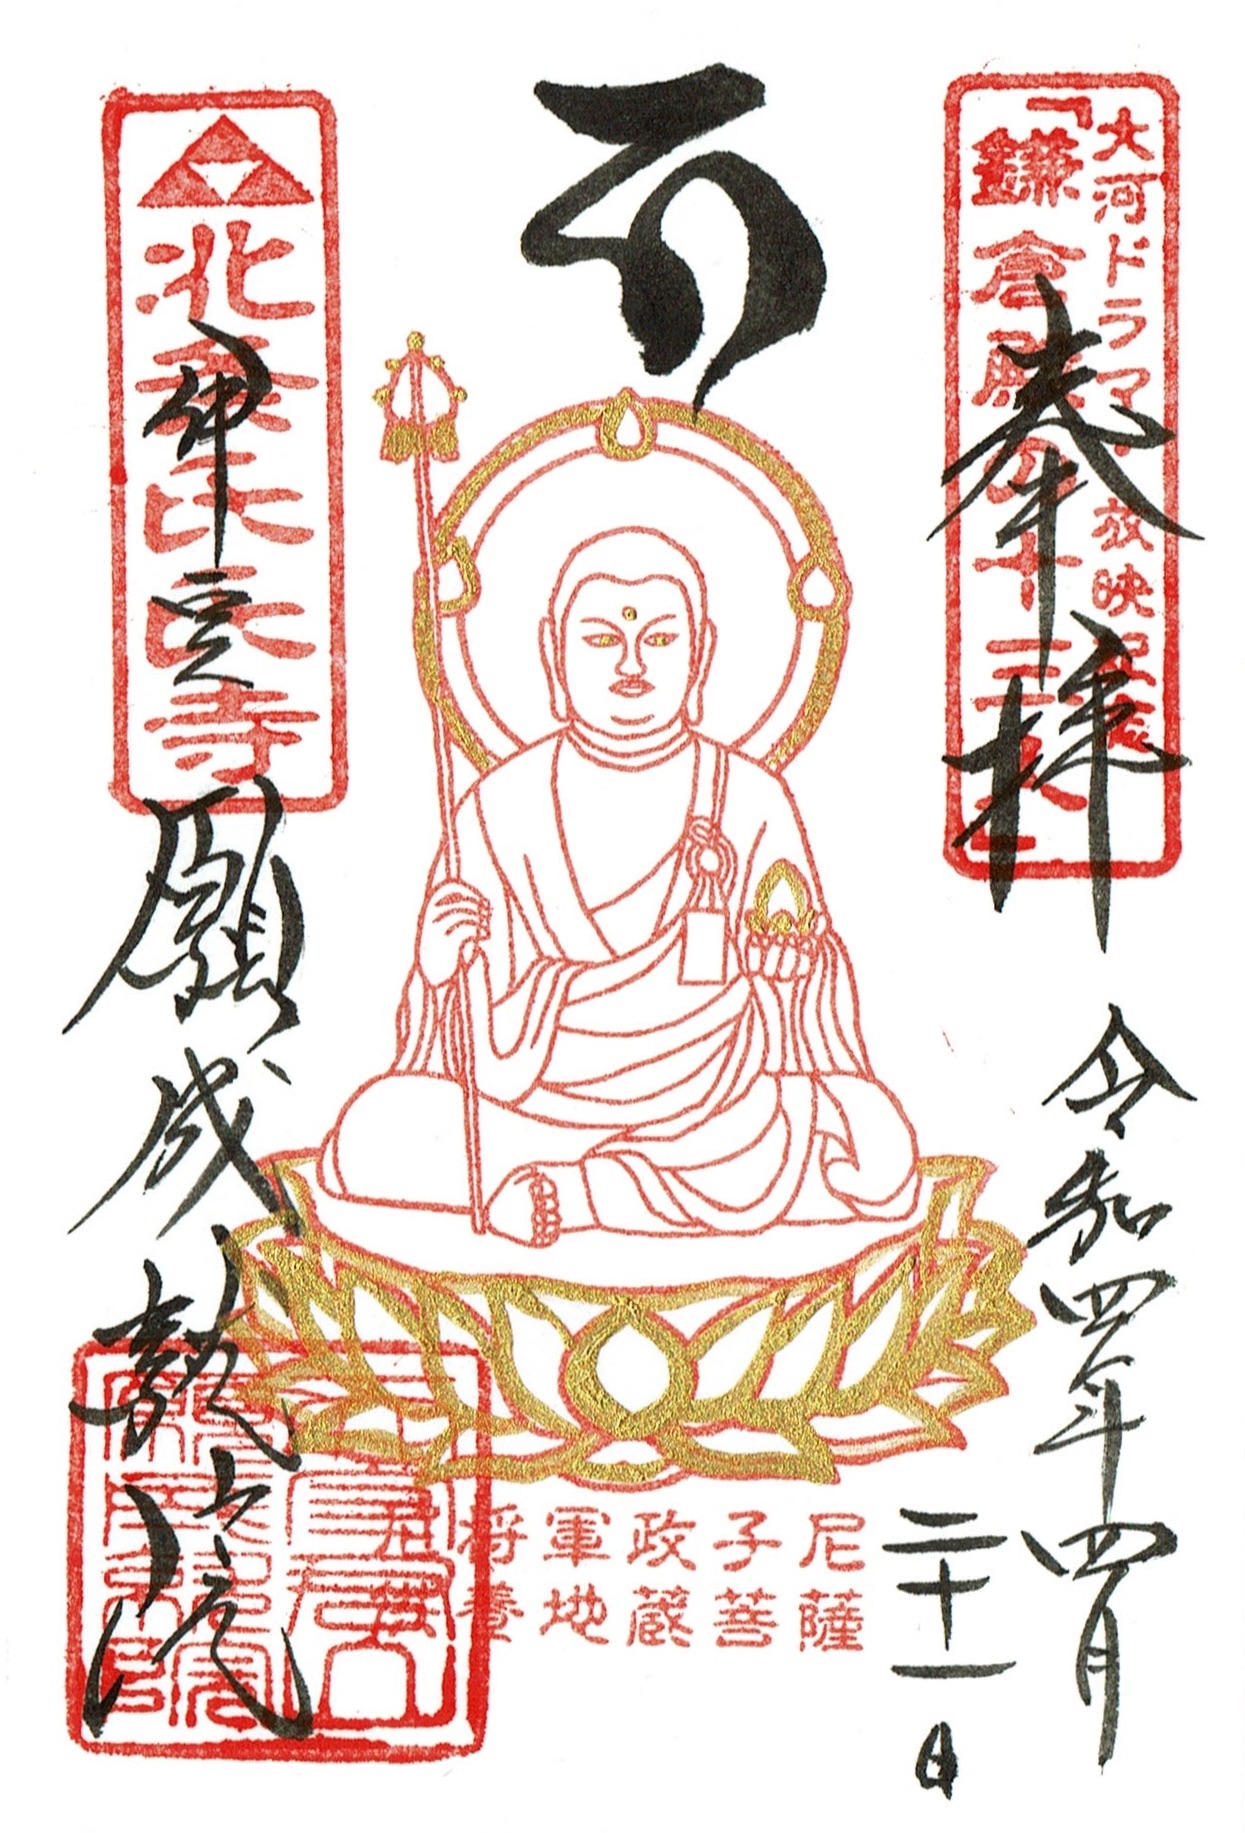 大河ドラマ放映記念
「鎌倉殿の十三人」
奉拝
令和四年四月
二十一日
将軍政子尼
養地蔵菩薩
北條氏氏寺
伊豆
願成就院